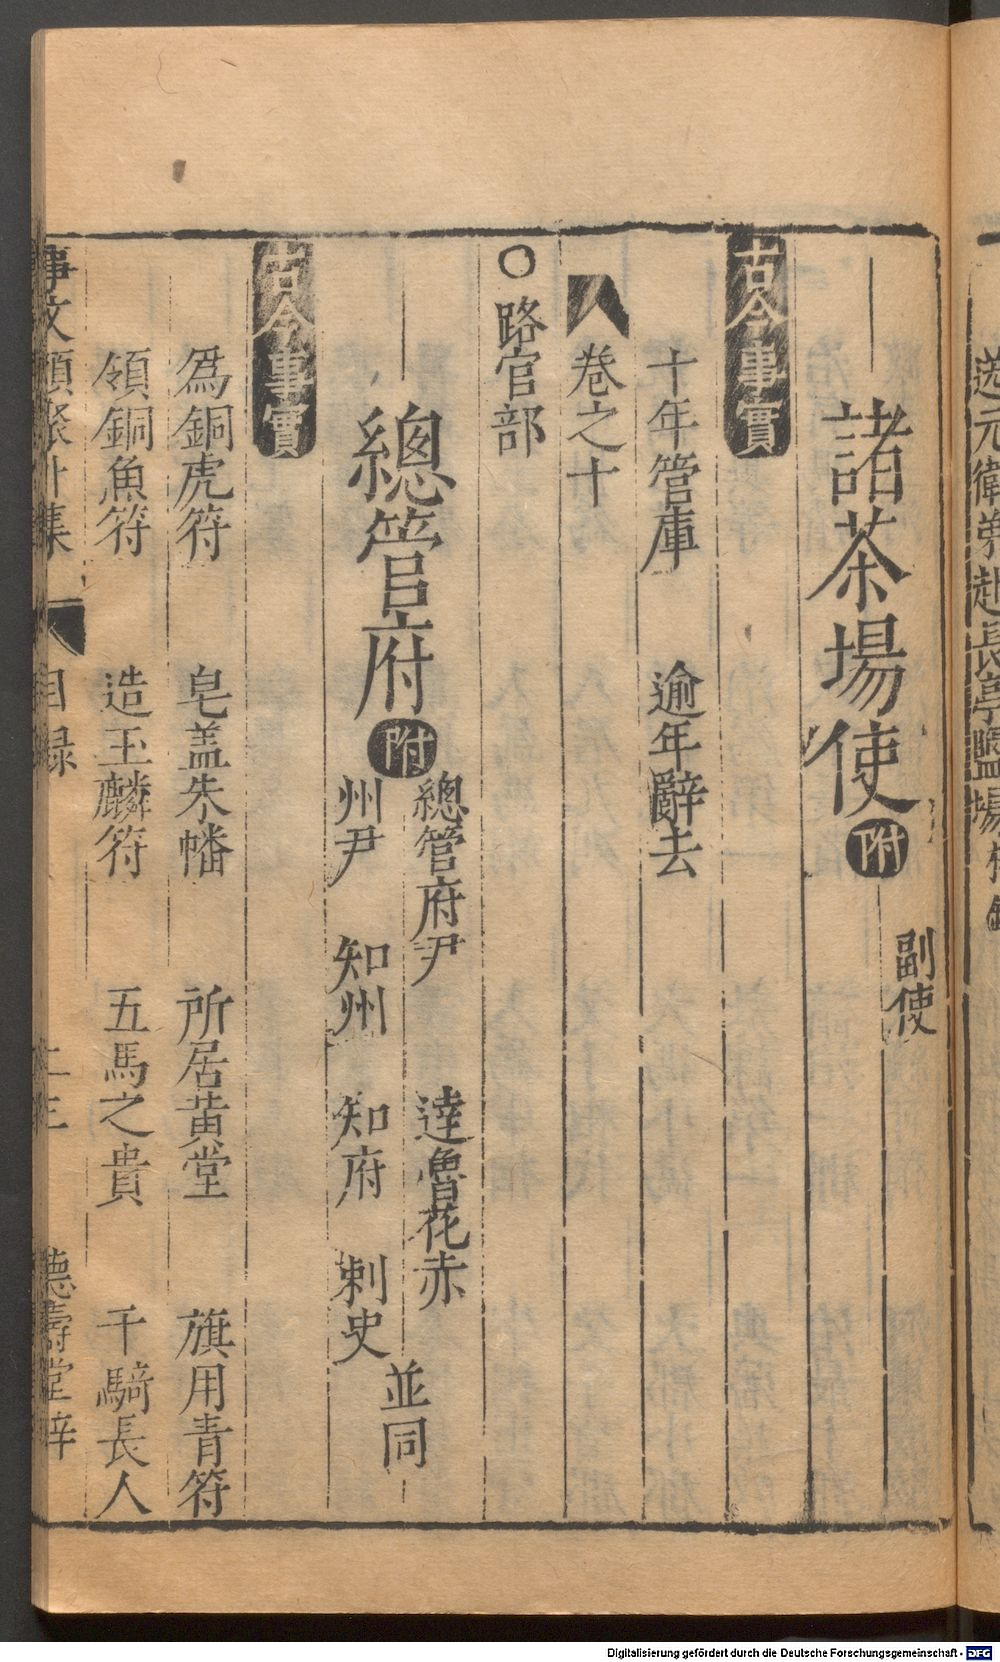 諸茶場使 附 副使
古今事實
十年管庫 逾年辭去
卷之十
○路官部
總管府 附 總管府尹 達魯花赤
州尹 知州 知府 刺史 並同
古今事實
爲銅虎符 皂盖朱幡 所居黄堂 旗用青符
領銅魚符 造玉麟符 五馬之貴 千騎長人
事文類聚外集 目録 二三 德壽堂梓
Digitalisierung gefördert durch die Deutsche Forschungsgemeinschaft - DFG